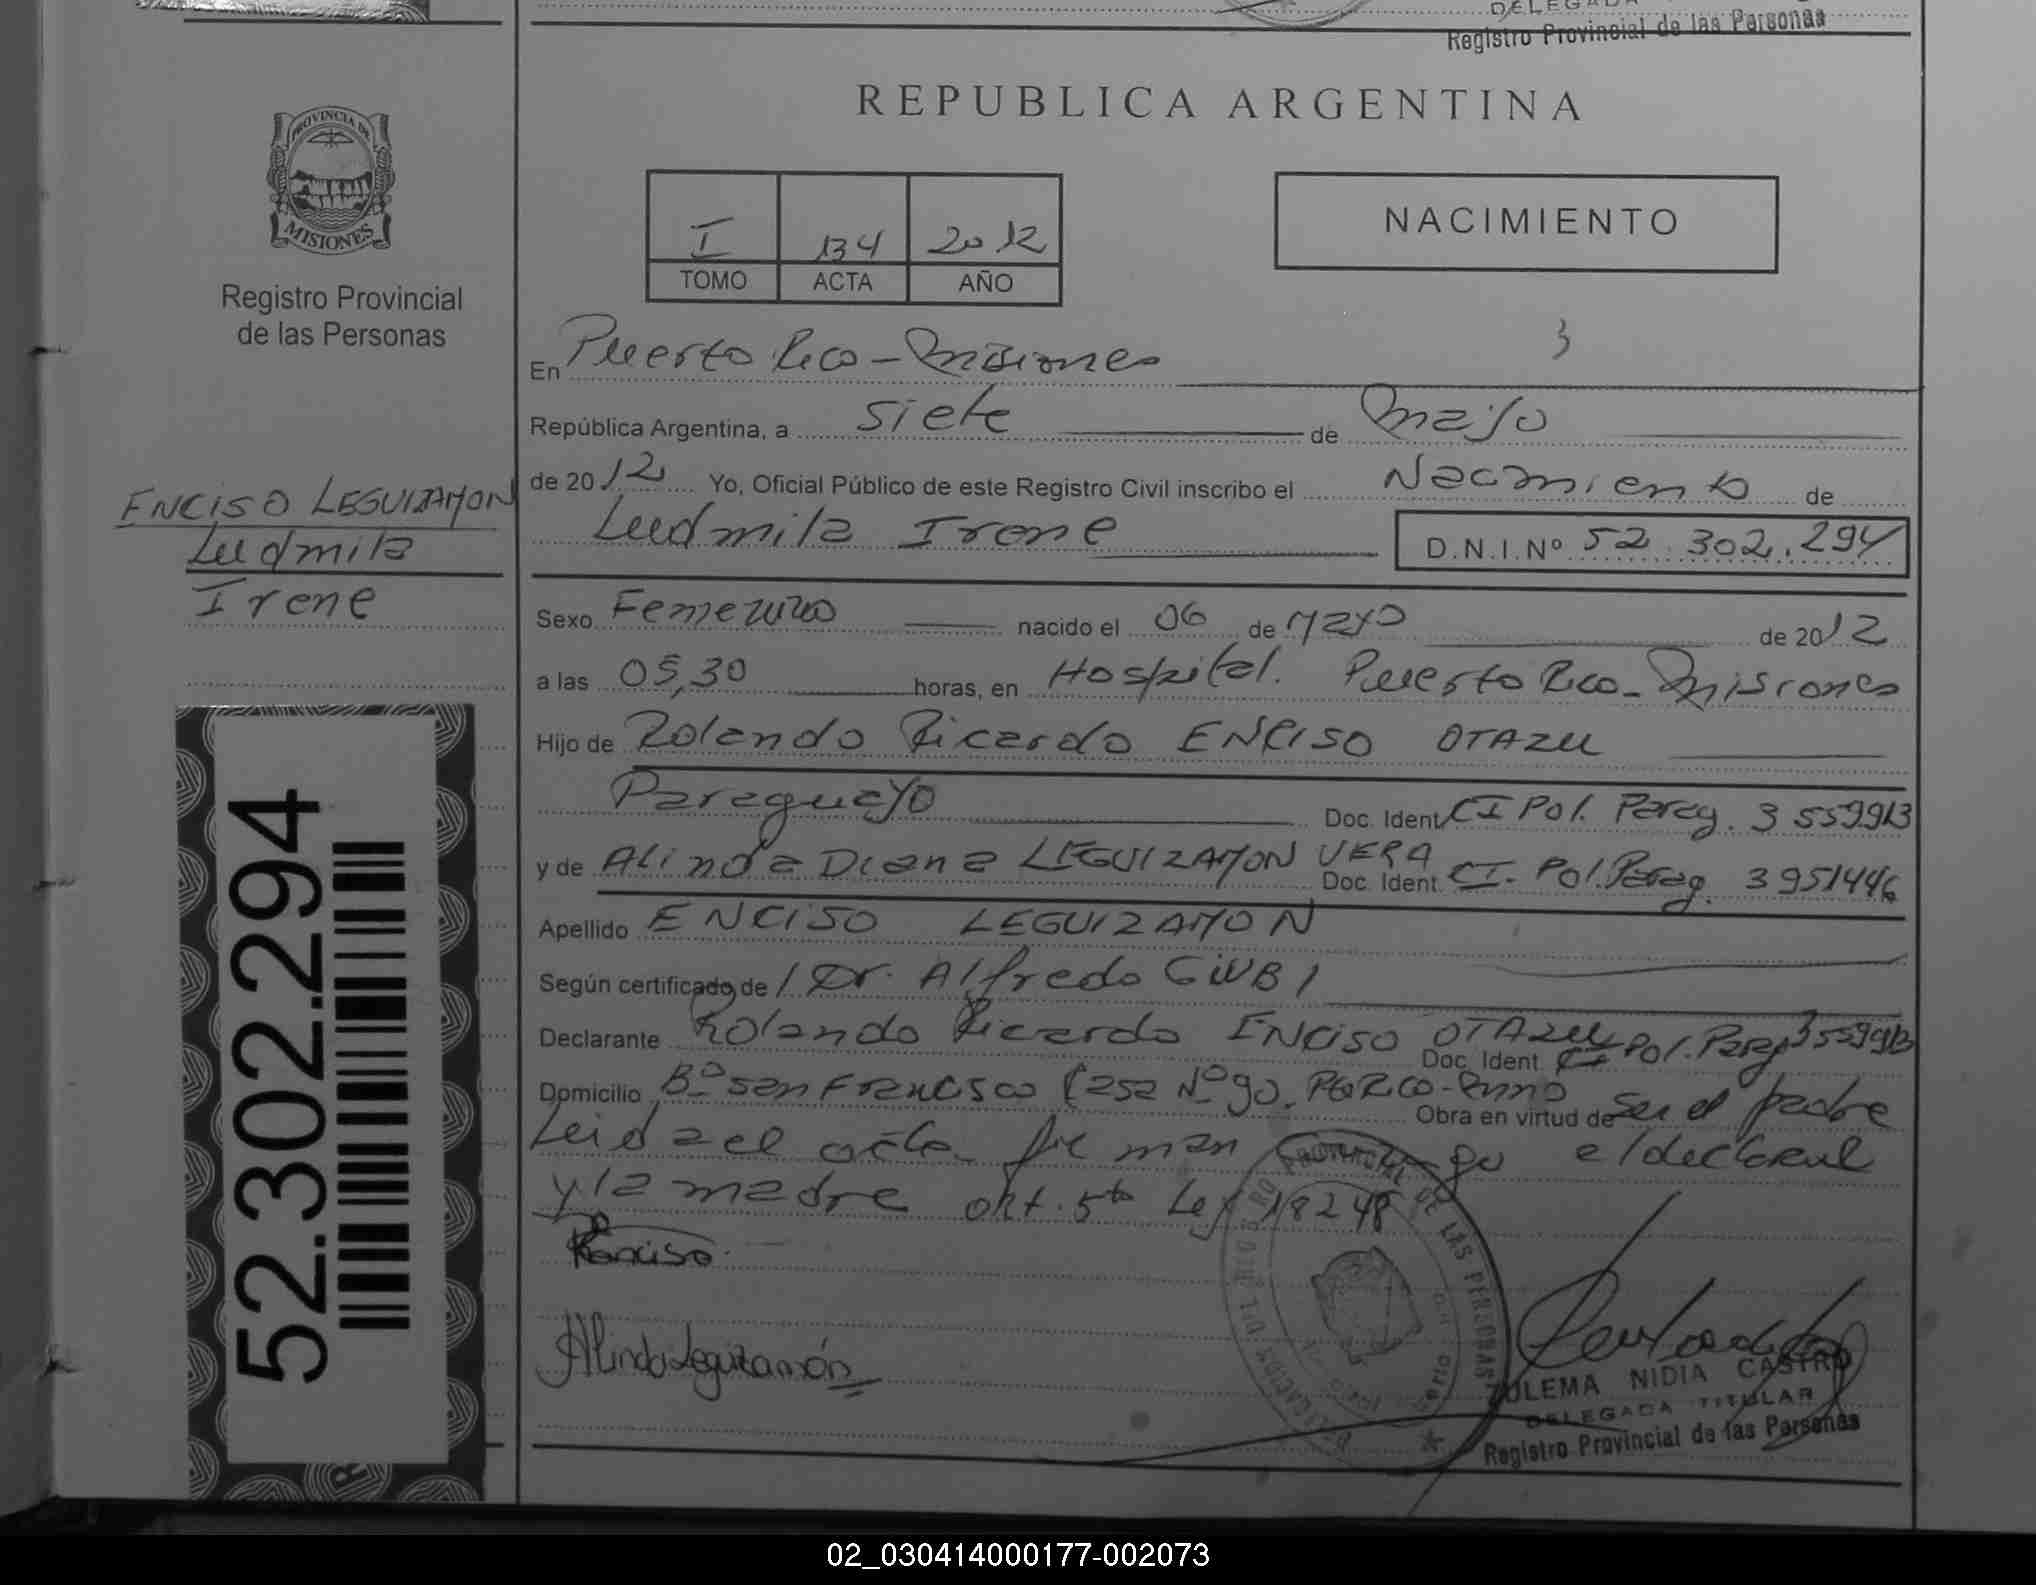 DELEGADA
Registro Provincial de las Personas
REPUBLICA ARGENTINA
PROVINCIA DE
MISIONES
Registro Provincial
de las Personas
I 134 2012
TOMO ACTA AÑO
NACIMIENTO
3
En Puerto Rico - Misiones
República Argentina, a siete de mayo
de 2012 Yo, Oficial Público de este Registro Civil inscribo el Nacimiento de
Ludmila Irene D.N.I.Nº 52.302.294
ENCISO LEGUIZAMON
Ludmila
Irene
Sexo Femenino nacido el 06 de Mayo de 2012
a las 05,30 horas, en Hospital. Puerto Rico - Misiones
Hijo de Rolando Ricardo ENCISO OTAZU
Paraguayo Doc. Ident CI Pol. Parag. 3 559913
y de Alinda Diana LEGUIZAMON VERA Doc. Ident. CI. Pol. Parag. 3951446
Apellido ENCISO LEGUIZAMON
Según certificado de Dr. Alfredo
Declarante Rolando Ricardo ENCISO OTAZU Doc. Ident CI Pol. Parag 3559913
Domicilio Bº San Francisco Casa Nº 90. Obra en virtud de ser el padre
Leida el acta firman el declarante
y la madre art. 5to Ley 18248
52.302.294
REnciso
Alinda Leguizamón
DELEGACION DEL REGISTRO PROVINCIAL DE LAS PERSONAS
ZULEMA NIDIA CASTRO
DELEGADA TITULAR
Registro Provincial de las Personas
02_030414000177-002073